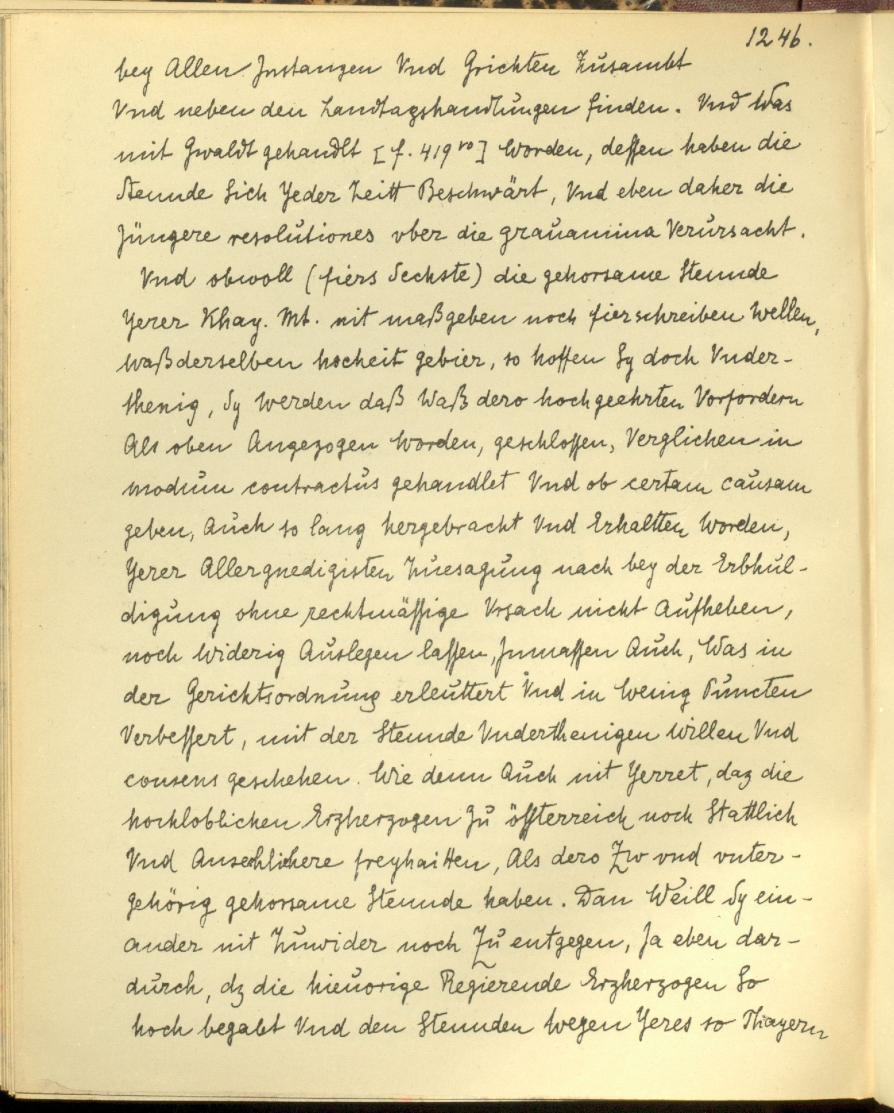 1246.
bey Allen Instanzen Vnd Grichten Zusambt
Vnd neben den Landtagshandlungen finden. Vnd Was
mit Gwaldt gehandlt [f. 419 vo] Worden, dessen haben die
Stennde Sich Yeder Zeitt Beschwärt, Vnd eben daher die
Jüngere resolutiones vber die grauamina Verursacht.
Vnd obwoll (fiers Sechste) die gehorsame Stennde
Yerer Khay. Mt. nit maßgeben noch fierschreiben Wellen,
Waß derselben hocheit gebier, so hoffen Sy doch Vnder-
thenig, Sy Werden daß Waß dero hochgeehrten Vorfordern
Als oben Angezogen Worden, geschlossen, Verglichen in
modum contractus gehandlet Vnd ob certam causam
geben, Auch so lang hergebracht Vnd Erhaltten Worden,
Yerer Allergnedigisten Zuesagung nach bey der Erbhul-
digung ohne rechtmässige Vrsach nicht Aufheben,
noch Widerig Auslegen lassen, Inmassen Auch, Was in
der Gerichtsordnung erleuttert Vnd in Wenig Puncten
Verbessert, mit der Stennde Vnderthenigen Willen Vnd
consens geschehen. Wie denn Auch nit Yerret, daz die
hochloblichen Erzherzogen Zu össterreich noch Stattlich
Vnd Ansechlichere freyhaitten, Als dero Zw vnd vnter-
gehörig gehorsame Stennde haben. Dan Weill Sy ein-
ander nit Zuwider noch Zu entgegen, Ja eben dar-
durch, dz die hieuorige Regierende Erzherzogen So
hoch begabt Vnd den Stennden Wegen Yeres so Thayern